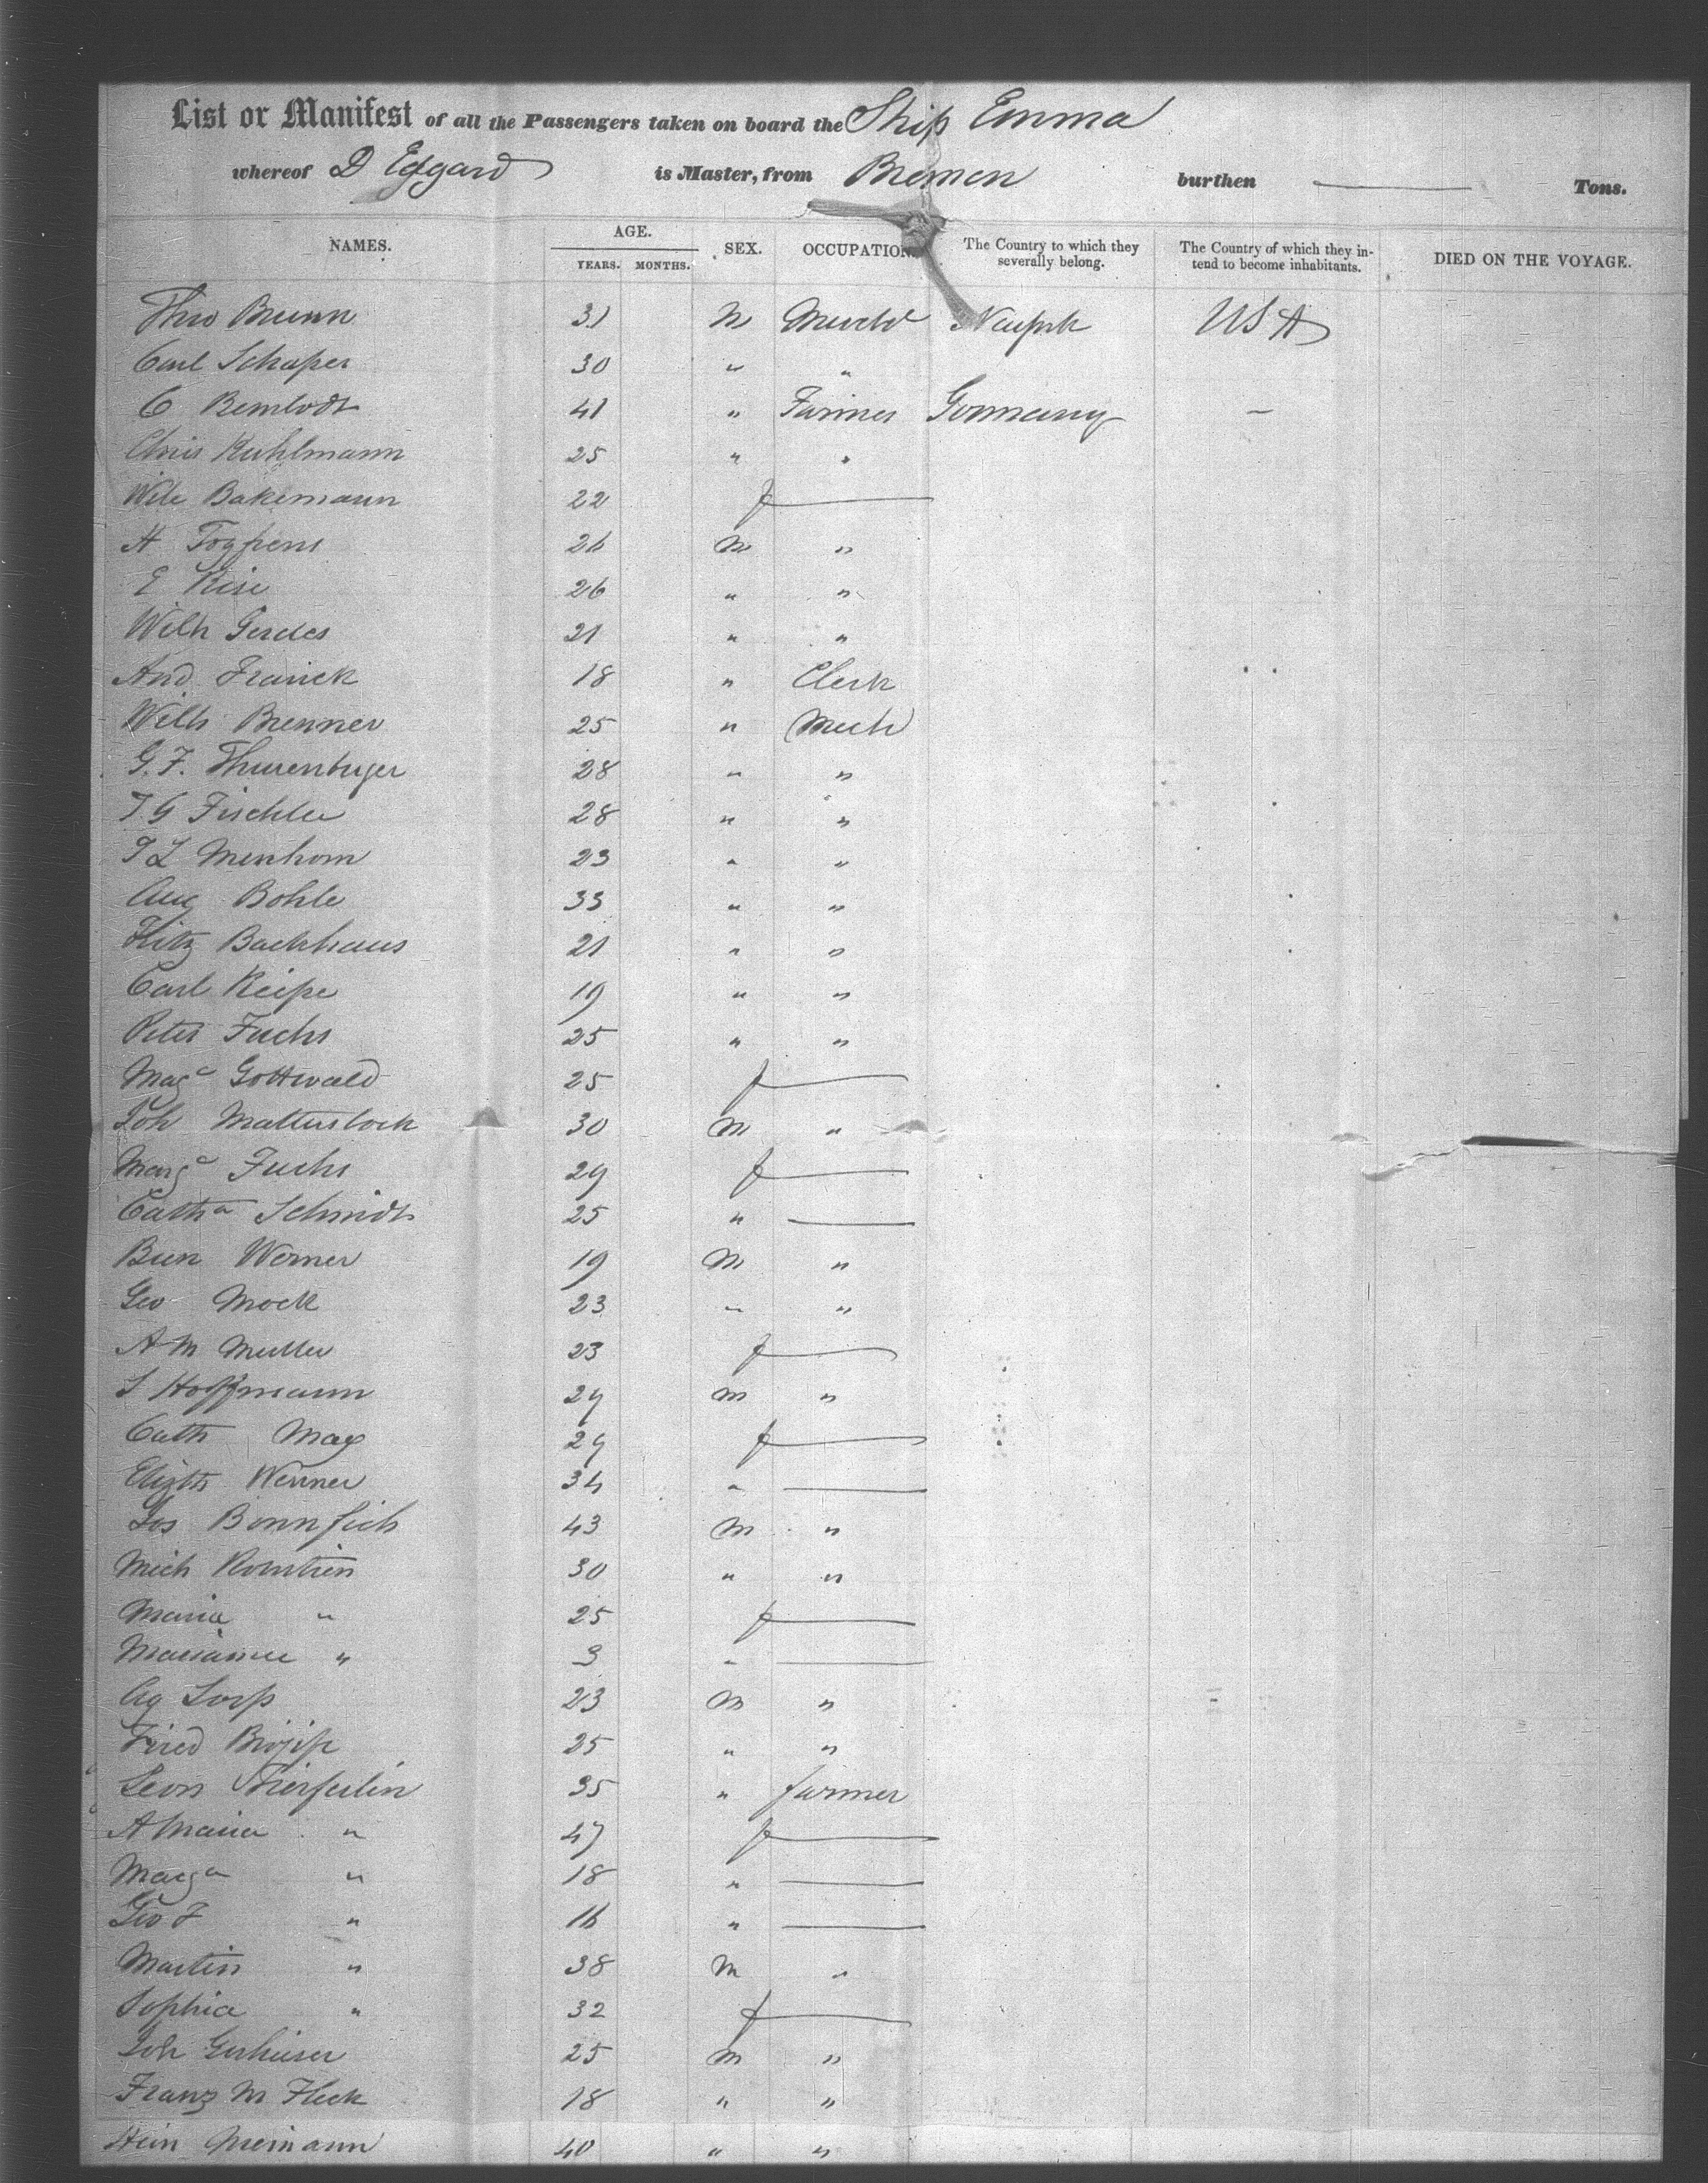 List or Manifest of all the Passengers taken on board the Ship Emma
whereof D Edgard is Master, from Bremen burthen Tons.
NAMES. AGE. YEARS. MONTHS. SEX. OCCUPATION. The Country to which they severally belong. The Country of which they intend to become inhabitants. DIED ON THE VOYAGE.
Theo Brunn 31 M USA
Carl Schaper 30 " "
C 41 " Farmer Germany –
Chris Kuhlmann 25 " "
Bakemann 22 f —
H 26 M "
E Rise 26 " "
Wilh Gerdes 21 " "
And Franck 18 " Clerk
Wilh Brenner 25 " Mech
G. F. 28 " "
28 " "
23 " "
Aug Bohle 33 " "
Fritz Backhaus 21 " "
Carl 19 " "
Peter Fuchs 25 " "
Mag a Gottwald 25 f —
Joh 30 M "
Marg a Fuchs 29 f —
Cath a Schmidt 25 " —
Werner 19 M "
Geo Mock 23 " "
A M Muller 23 f —
S Hoffmann 29 M "
Cath May 29 f —
Elizth Werner 34 " —
Jos 43 M "
Mich 30 " "
Maria " 25 f —
Marianne " 3 " —
23 M "
Fried 25 " "
Leon 35 " farmer
A Maria " 47 f —
Marg a " 18 " —
Geo F " 16 " —
Martin " 38 M "
Sophia " 32 f —
Joh 25 M "
Franz M Fleck 18 " "
Hein Meinann 40 " "